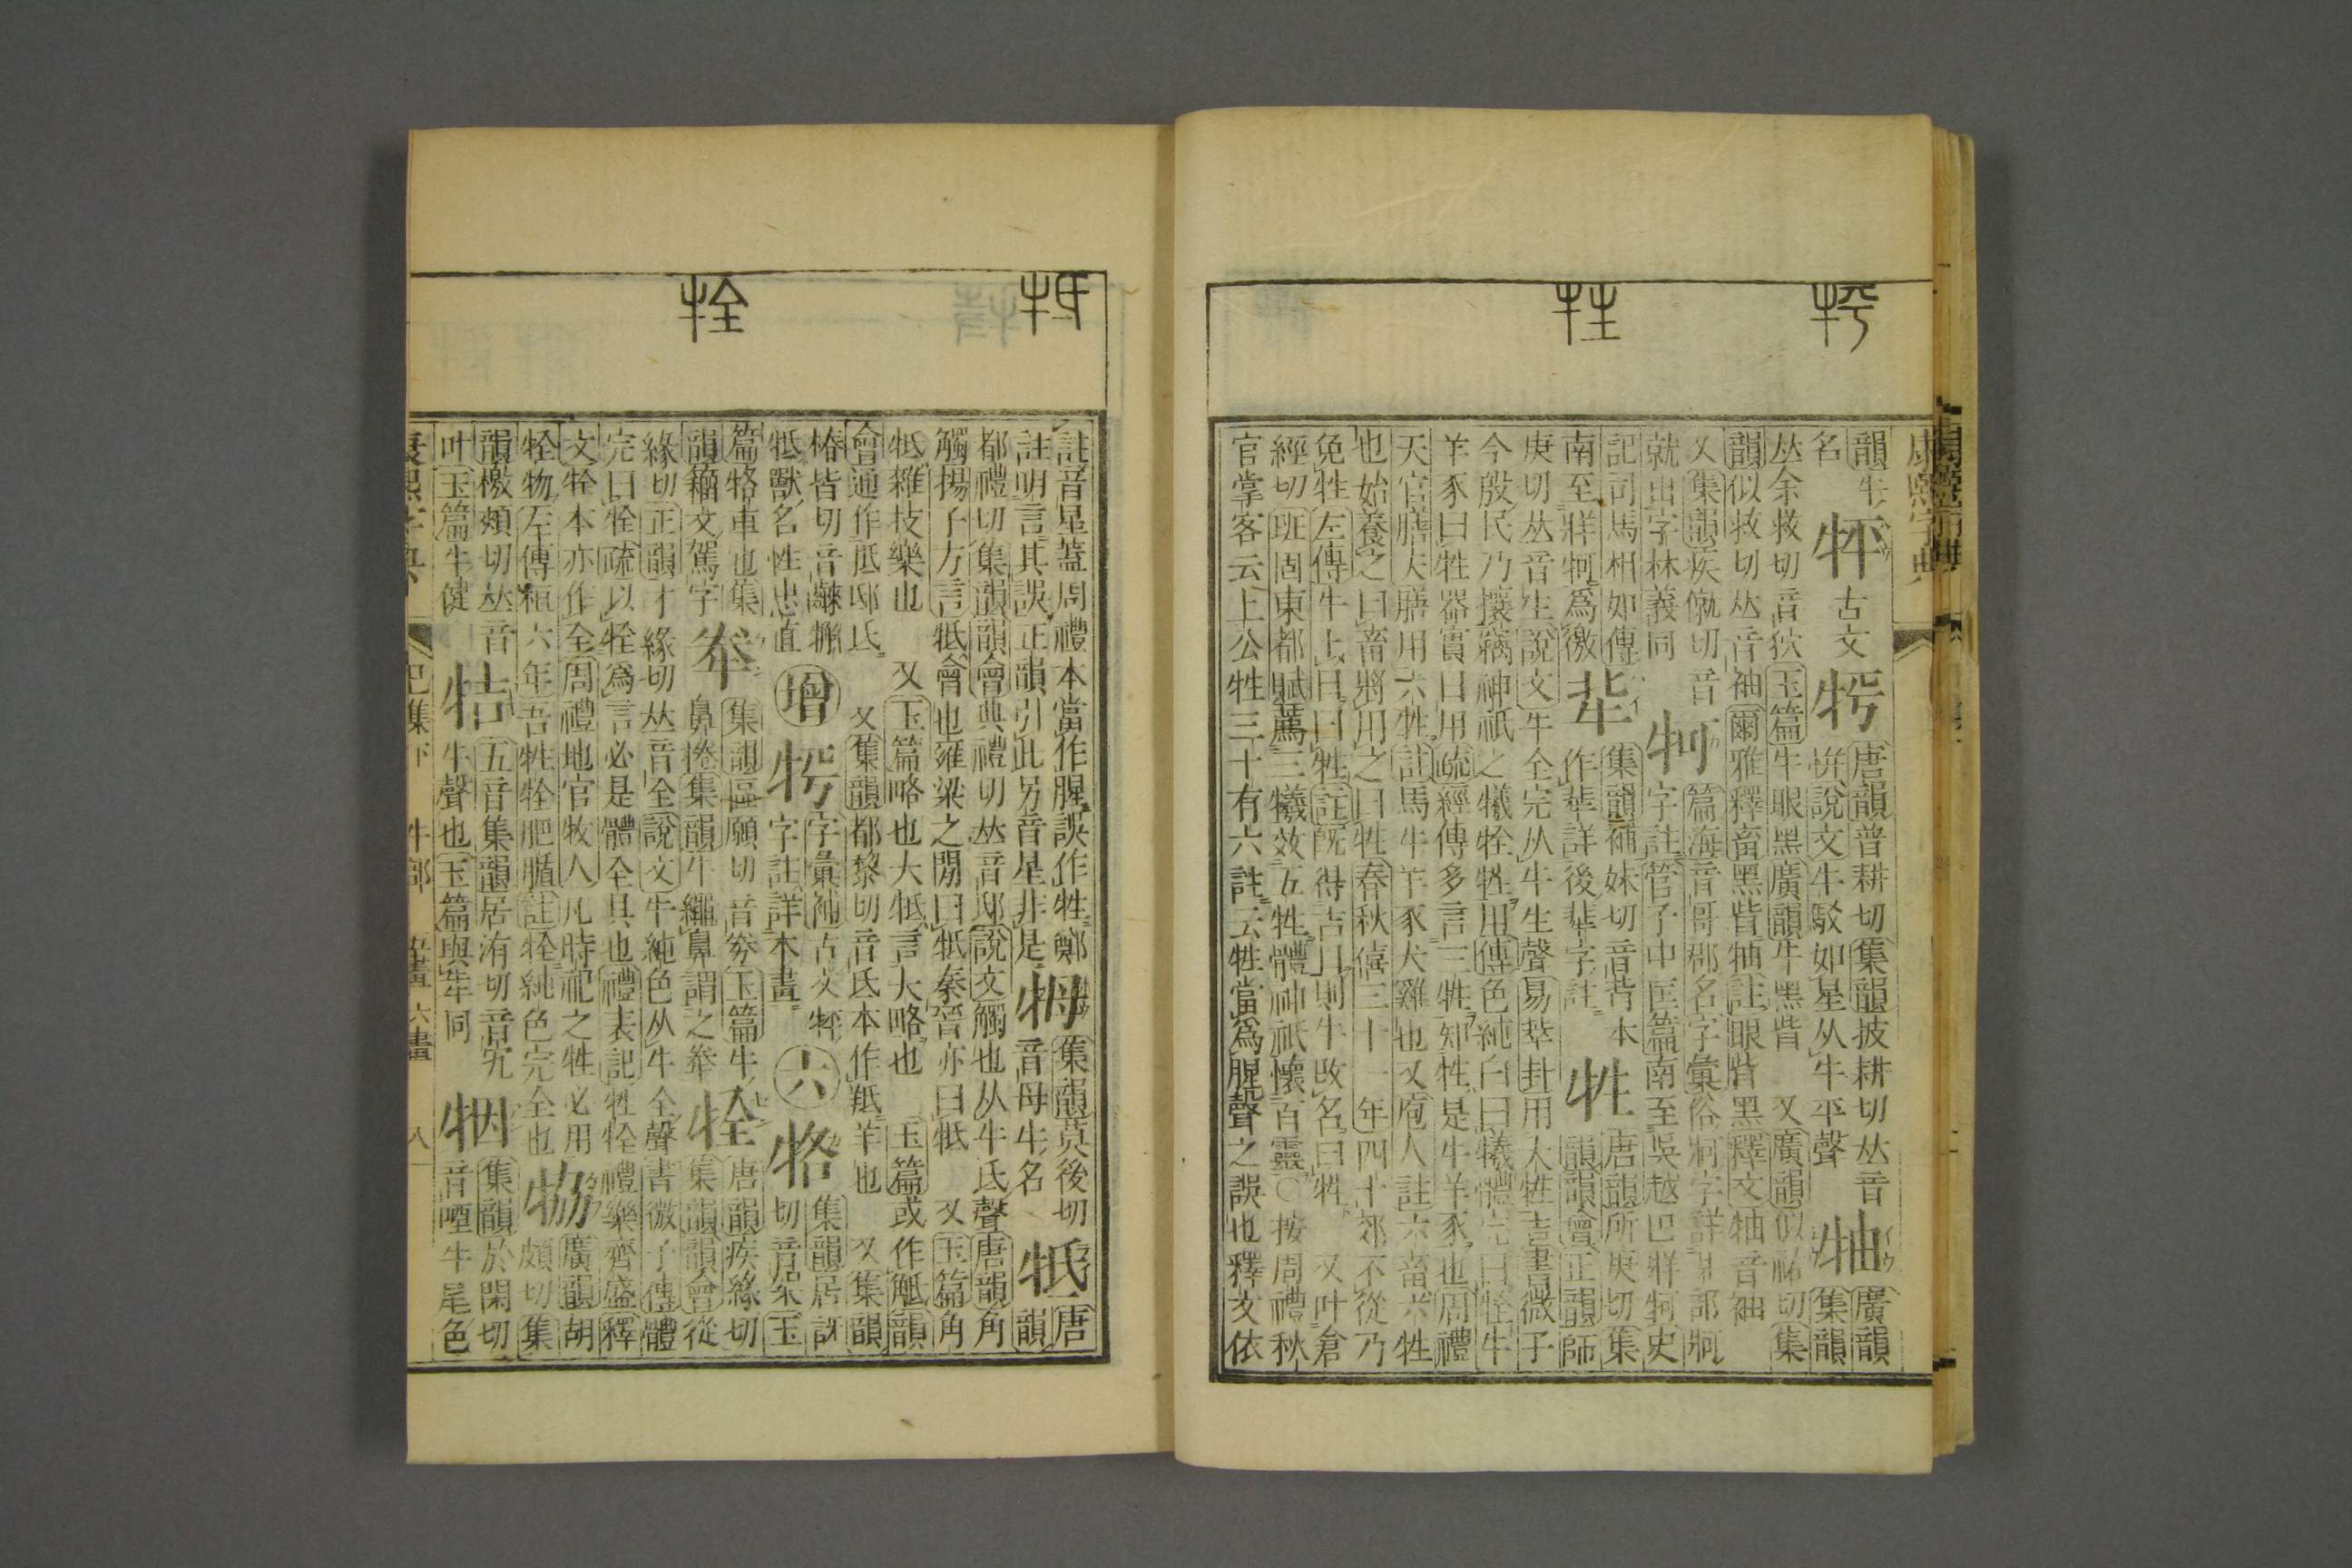 康熙字典
韻牛
名
牪
唐韻普耕切集韻披耕切𠀤音
怦說文牛駁如星从牛平聲
牰
廣韻
集韻
𠀤余救切音狖玉篇牛眼黑廣韻牛黑眥 又廣韻似祐切集
韻似救切𠀤音袖爾雅釋畜黑眥牰註眼眥黑釋文牰音袖
又集韻疾僦切音
就出字林義同
牁
篇海音哥郡名字彙俗牁字詳爿部牁
字註管子中匡篇南至吳越巴牂牁史
記司馬相如傳
南至牂牁爲徼
𤙊
集韻補妹切音背本
作𤛿詳後𤛿字註
牲
唐韻所庚切集
韻韻會正韻師
庚切𠀤音生說文牛全完从牛生聲易萃卦用大牲吉書微子
今殷民乃攘竊神祇之犧牷牲用傳色純曰犧體完曰牷牛
羊豕曰牲器實曰用疏經傳多言三牲知牲是牛羊豕也周禮
天官膳夫膳用六牲註馬牛羊豕犬雞也又庖人註六畜六牲
也始養之曰畜將用之曰牲春秋僖三十一年四卜郊不從乃
免牲左傳牛卜日曰牲註旣得吉日則牛改名曰牲 又叶倉
經切班固東都賦薦三犧效五牲禮神祇懷百靈○按周禮秋
官掌客云上公牲三十有六註云牲當爲腥聲之誤也釋文依
註音星蓋周禮本當作腥誤作牲鄭
註明言其誤正韻引此另音星非是
牳
集韻莫後切
音母牛名
牴
唐
韻
都禮切集韻韻會典禮切𠀤音邸說文觸也从牛氐聲唐韻角
觸揚子方言牴會也雍梁之閒曰牴秦晉亦曰牴 又玉篇角
牴雜技樂也 又玉篇略也大牴言大略也 玉篇或作觝韻
會通作抵邸氐 又集韻都黎切音氐本作羝羊也 又集韻
椿皆切音䶑㹌
牴獸名性忠直
增
㸳
字彙補古文𤘾
字註詳本畫
六
㸵
集韻居訝
切音架玉
篇㸵車也集
韻籀文駕字
牶
集韻區願切音劵玉篇牛
鼻桊集韻牛繩鼻謂之牶
牷
唐韻疾緣切
集韻韻會從
緣切正韻才緣切𠀤音全說文牛純色从牛全聲書微子傳體
完曰牷疏以牷爲言必是體全具也禮表記牲牷禮樂齊盛釋
文牷本亦作全周禮地官牧人凡時祀之牲必用
牷物左傳桓六年吾牲牷肥腯註牷純色完全也
㸺
廣韻胡
頰切集
韻檄頰切𠀤音
叶玉篇牛健
㸸
五音集韻居洧切音宄
牛聲也玉篇與𤘘同
㸶
集韻於閑切
音㘻牛尾色
康熙字典 巳集下 牛部 五畫 六畫 八